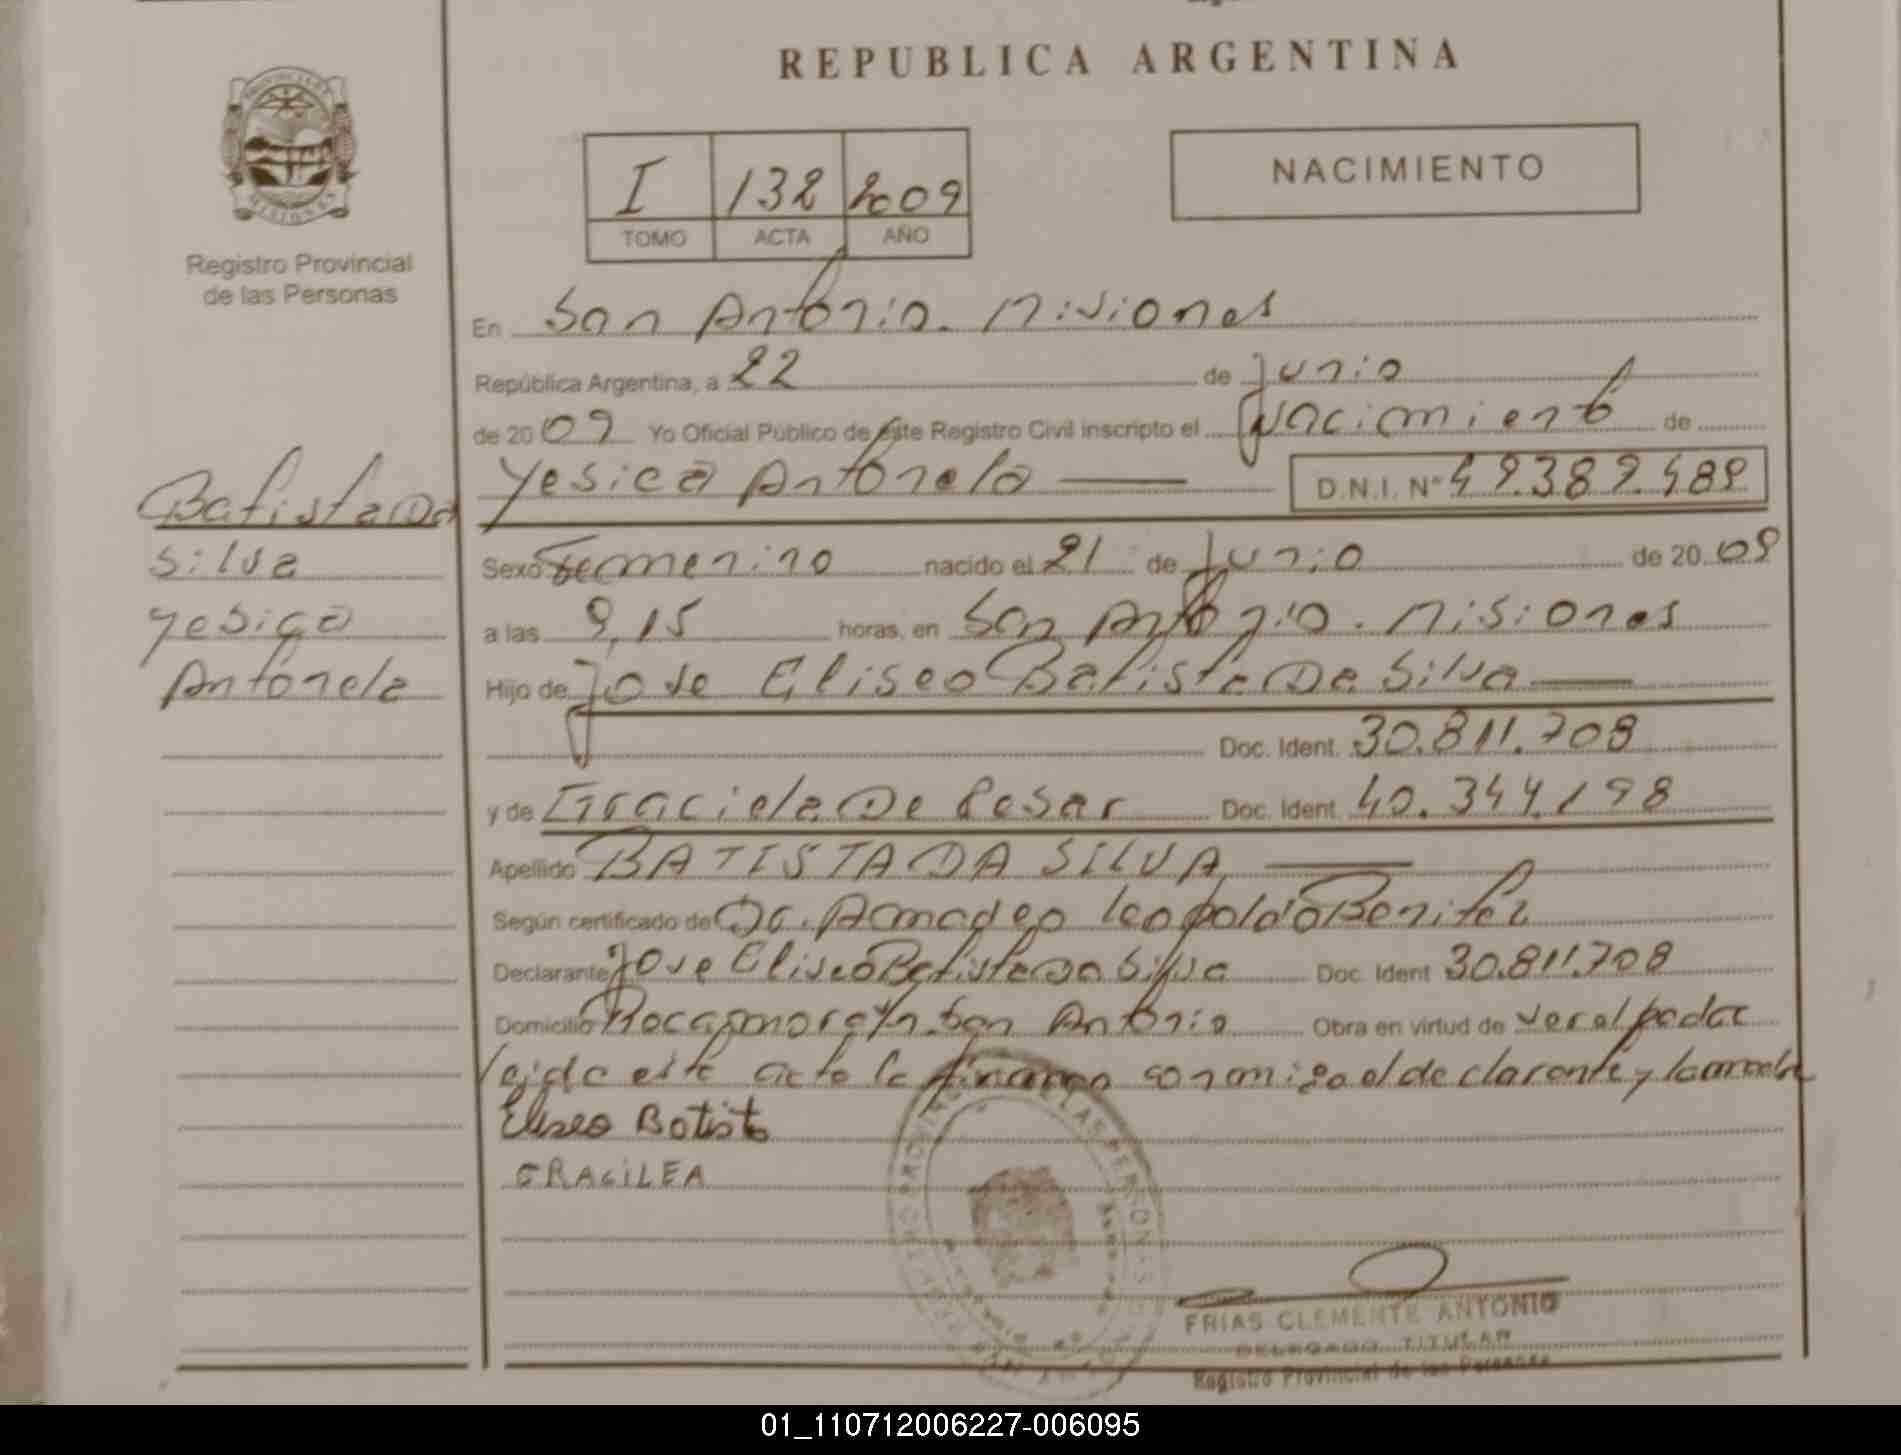 REPUBLICA ARGENTINA
NACIMIENTO
I 132 2009
TOMO ACTA AÑO
MISIONES
Registro Provincial
de las Personas
En San Antonio. Misiones
República Argentina, a 22 de Junio
de 2009 Yo Oficial Público de este Registro Civil inscripto el Nacimiento de
Yesica Antonela D.N.I. Nº 49.389.489
Batista Da
Silva
Yesica
Antonela
Sexo Femenino nacido el 21 de Junio de 2009
a las 9,15 horas, en San Antonio. Misiones
Hijo de Jose Eliseo Batista Da Silva
Doc. Ident. 30.811.708
y de Graciela De Cesar Doc. Ident. 40.344.198
Apellido BATISTA DA SILVA
Según certificado de Dr. Amadeo Leopoldo Benitez
Declarante Jose Eliseo Batista Da Silva Doc. Ident 30.811.708
Domicilio San Antonio Obra en virtud de ser el padre
Leida este acta la firman conmigo el declarante y la madre
Eliseo Batista
GRACILEA
FRIAS CLEMENTE ANTONIO
DELEGADO TITULAR
Registro Provincial de las Personas
01_110712006227-006095